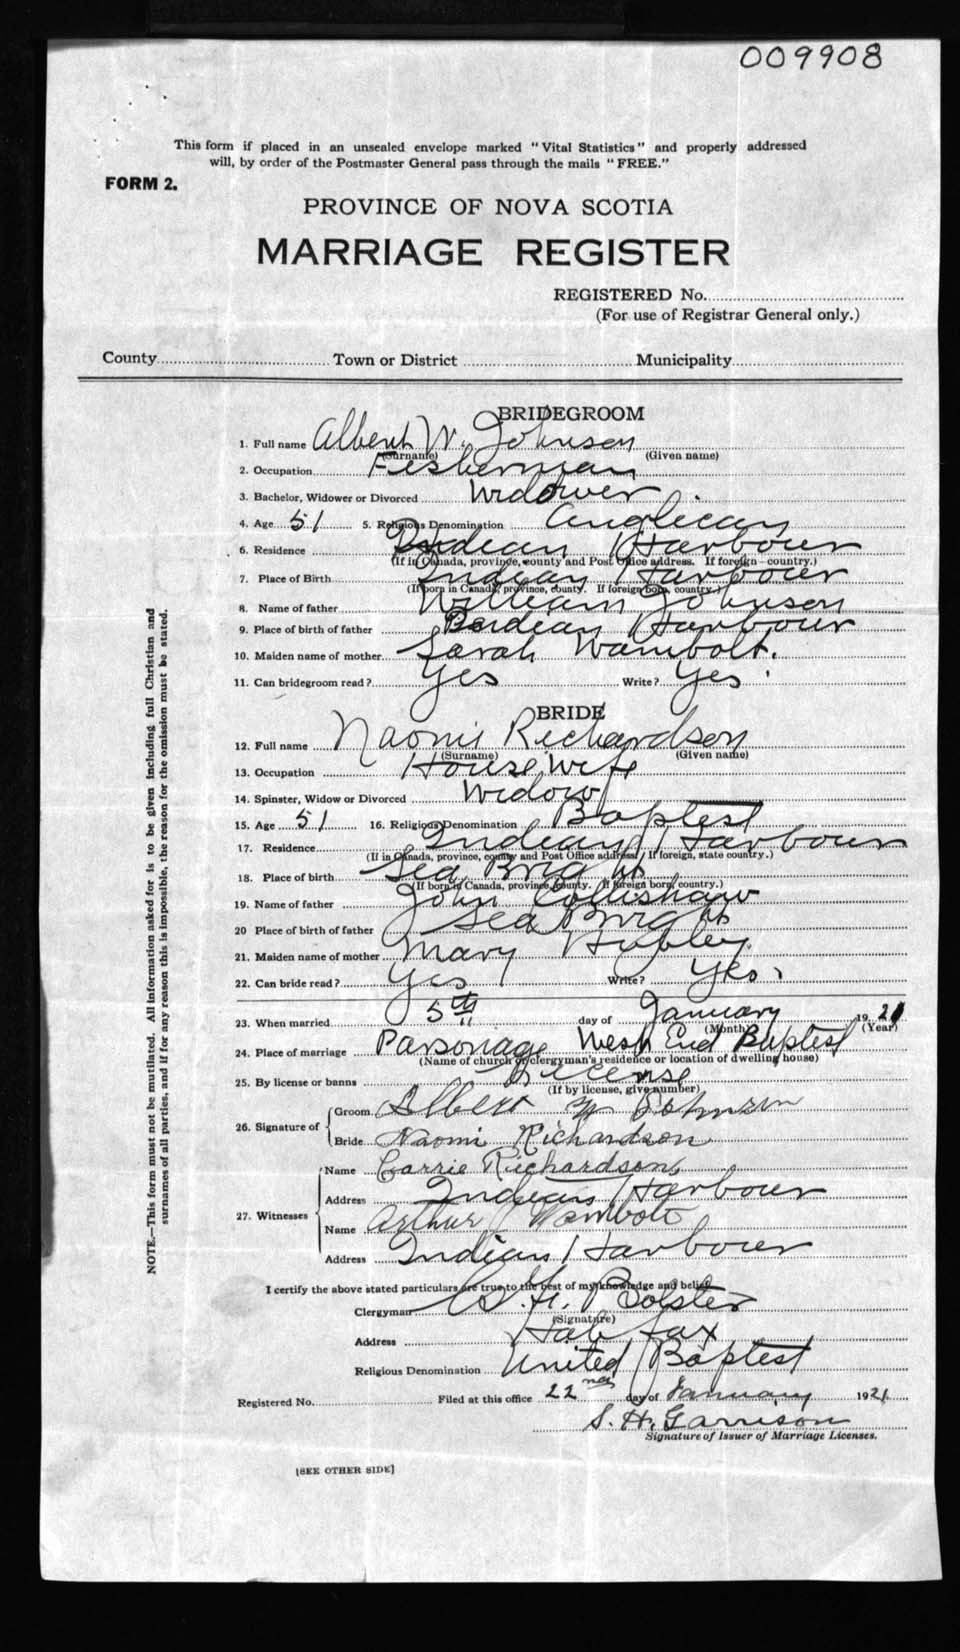 009908
This form if placed in an unsealed envelope marked "Vital Statistics" and properly addressed
will, by order of the Postmaster General pass through the mails "FREE."
FORM 2.
PROVINCE OF NOVA SCOTIA
MARRIAGE REGISTER
REGISTERED No.
(For use of Registrar General only.)
County Town or District Municipality
BRIDEGROOM
1. Full name Albert W. Johnson
(Surname) (Given name)
2. Occupation Fisherman
3. Bachelor, Widower or Divorced Widower
4. Age 51 5. Religious Denomination Anglican
6. Residence Indian Harbour
(If in Canada, province, county and Post Office address. If foreign—country.)
7. Place of Birth Indian Harbour
(If born in Canada, province, county. If foreign born, country.)
8. Name of father William Johnson
9. Place of birth of father Indian Harbour
10. Maiden name of mother Sarah Wambolt.
11. Can bridegroom read? Yes Write? Yes
BRIDE
12. Full name Naomi Richardson
(Surname) (Given name)
13. Occupation House Wife
14. Spinster, Widow or Divorced Widow
15. Age 51 16. Religious Denomination Baptist
17. Residence Indian Harbour
(If in Canada, province, county and Post Office address / If foreign, state country.)
18. Place of birth Sea Bright
(If born in Canada, province, county. If foreign born, country.)
19. Name of father John Collishaw
20 Place of birth of father Sea Bright
21. Maiden name of mother Mary Hubley
22. Can bride read? Yes Write? Yes.
23. When married 5th day of January 1921
(Month) (Year)
24. Place of marriage Parsonage West End Baptist
(Name of church or clergyman's residence or location of dwelling house)
25. By license or banns License
(If by license, give number)
26. Signature of
Groom Albert W Johnson
Bride Naomi Richardson
27. Witnesses
Name Carrie Richardson
Address Indian Harbour
Name Arthur Wambolt
Address Indian Harbour
I certify the above stated particulars are true to the best of my knowledge and belief.
Clergyman H. Bolster
(Signature)
Address Halifax
Religious Denomination United Baptist
Registered No. Filed at this office 22nd day of January 1921
S. H. Garrison
Signature of Issuer of Marriage Licenses.
[SEE OTHER SIDE]
NOTE.—This form must not be mutilated. All information asked for is to be given including full Christian and
surnames of all parties, and if for any reason this is impossible, the reason for the omission must be stated.